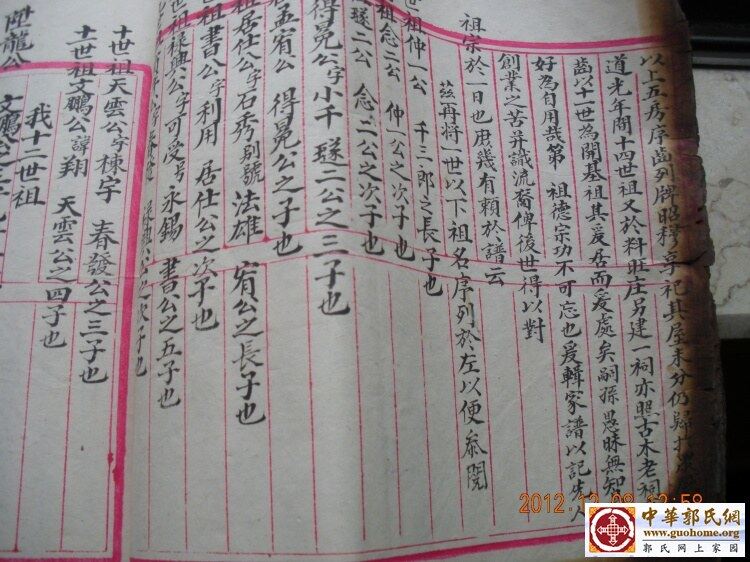 以上五房序齒列牌昭穆享祀其屋未分仍歸
道光年間十四世祖又於料旺庄另建一祠亦照古木老祠
齒以十一世為開基祖其爰居而爰處矣嗣孫愚昧無知
好為自用哉第 祖德宗功不可忘也爰輯家譜以記先人
創業之苦并識流裔俾後世得以對
祖宗於一日也庶幾有賴於譜云
茲再將一世以下祖名序列於左以便叅閱
世祖仲一公 千三郎之長子也
祖念二公 仲一公之次子也
璲二公 念二公之次子也
得冕公字小千 璲二公之三子也
孟宥公 得冕公之子也
祖居仕公字石秀别號法雄 宥公之長子也
祖書公字利用 居仕公之次子也
世祖祿興公字可受号永錫 書公之五子也
公之次子也
十世祖天雲公字棟宇 春發公之三子也
十一世祖文鵬公諱翔 天雲公之四子也
我十二世祖
龍公
2012.12.08 12:58
中華郭氏網
www.guohome.org
郭氏网上家园